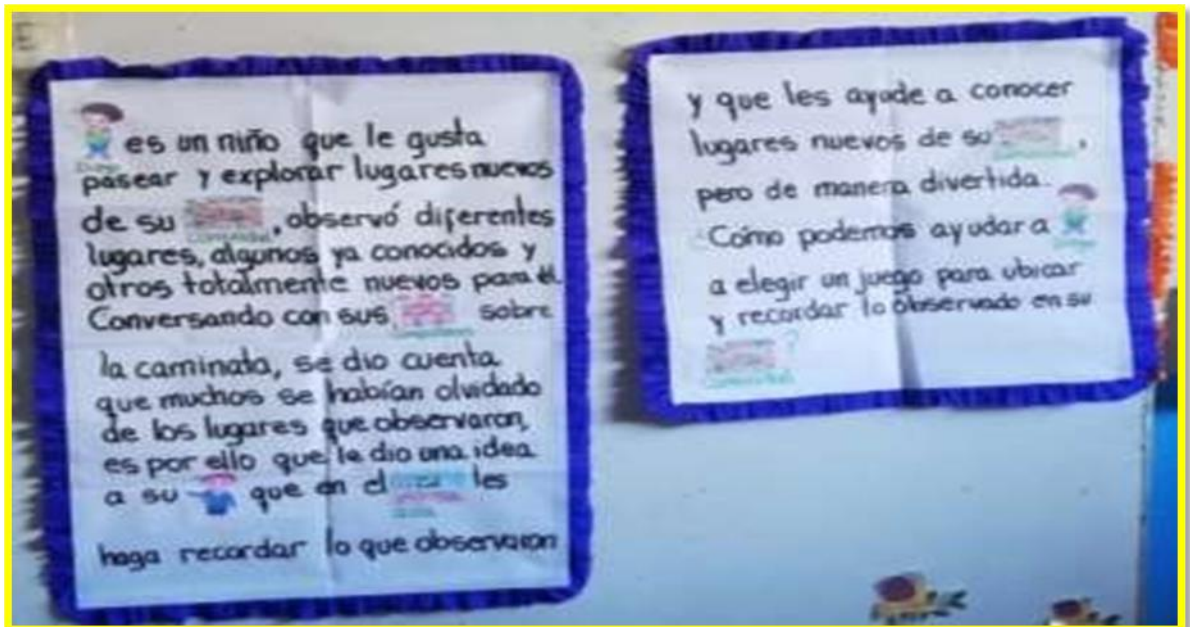 es un niño que le gusta
pasear y explorar lugares nuevos
de su , observó diferentes
lugares, algunos ya conocidos y
otros totalmente nuevos para él.
Conversando con sus sobre
la caminata, se dio cuenta
que muchos se habían olvidado
de los lugares que observaron,
es por ello que le dio una idea
a su que en el les
haga recordar lo que observaron
y que les ayude a conocer
lugares nuevos de su ,
pero de manera divertida.
¿Cómo podemos ayudar a
a elegir un juego para ubicar
y recordar lo observado en su
Comunidad ?